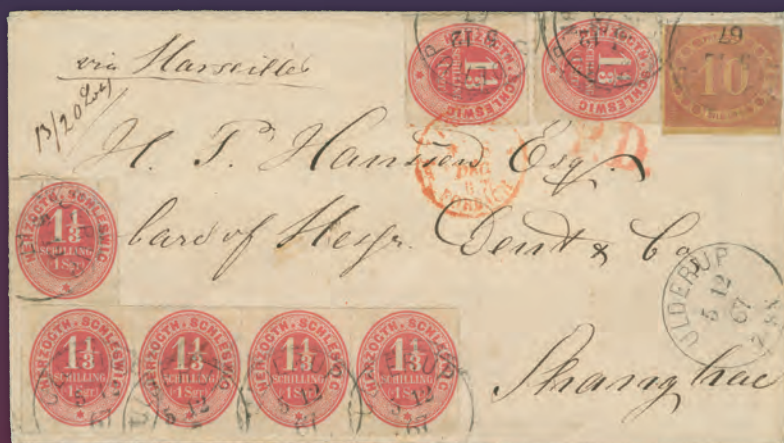 via Marseille
13/20 Lot
H. P. Hansen Esq.
Care of Messr. Dent & Co.
Shanghae
HERZOGTH. SCHLESWIG
1⅓
SCHILLING
HERZOGTH. SCHLESWIG
1⅓
SCHILLING
10
P.D.
HERZOGTH. SCHLESWIG
1⅓
SCHILLING
1 Sgr.
ULDERUP
5 12
67
HERZOGTH. SCHLESWIG
1⅓
SCHILLING
1 Sgr.
HERZOGTH. SCHLESWIG
1⅓
SCHILLING
1 Sgr.
HERZOGTH. SCHLESWIG
1⅓
SCHILLING
1 Sgr.
HERZOGTH. SCHLESWIG
1⅓
SCHILLING
1 Sgr.